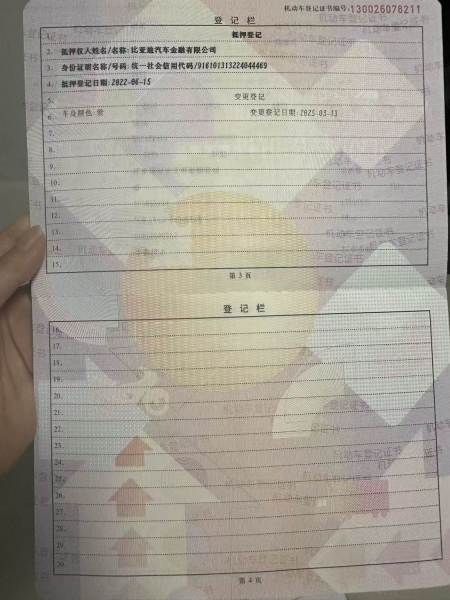 机动车登记证书编号:130026076211
登记栏
1. 抵押登记
2. 抵押权人姓名/名称:比亚迪汽车金融有限公司
3. 身份证明名称/号码:统一社会信用代码/916101313224044469
4. 抵押登记日期:2022-06-15
5. 变更登记
6. 车身颜色:紫 变更登记日期:2025-03-13
7.
8.
9.
10.
11.
12.
13.
14.
15.
第3页
登记栏
16.
17.
18.
19.
20.
21.
22.
23.
24.
25.
26.
27.
28.
29.
30.
第4页